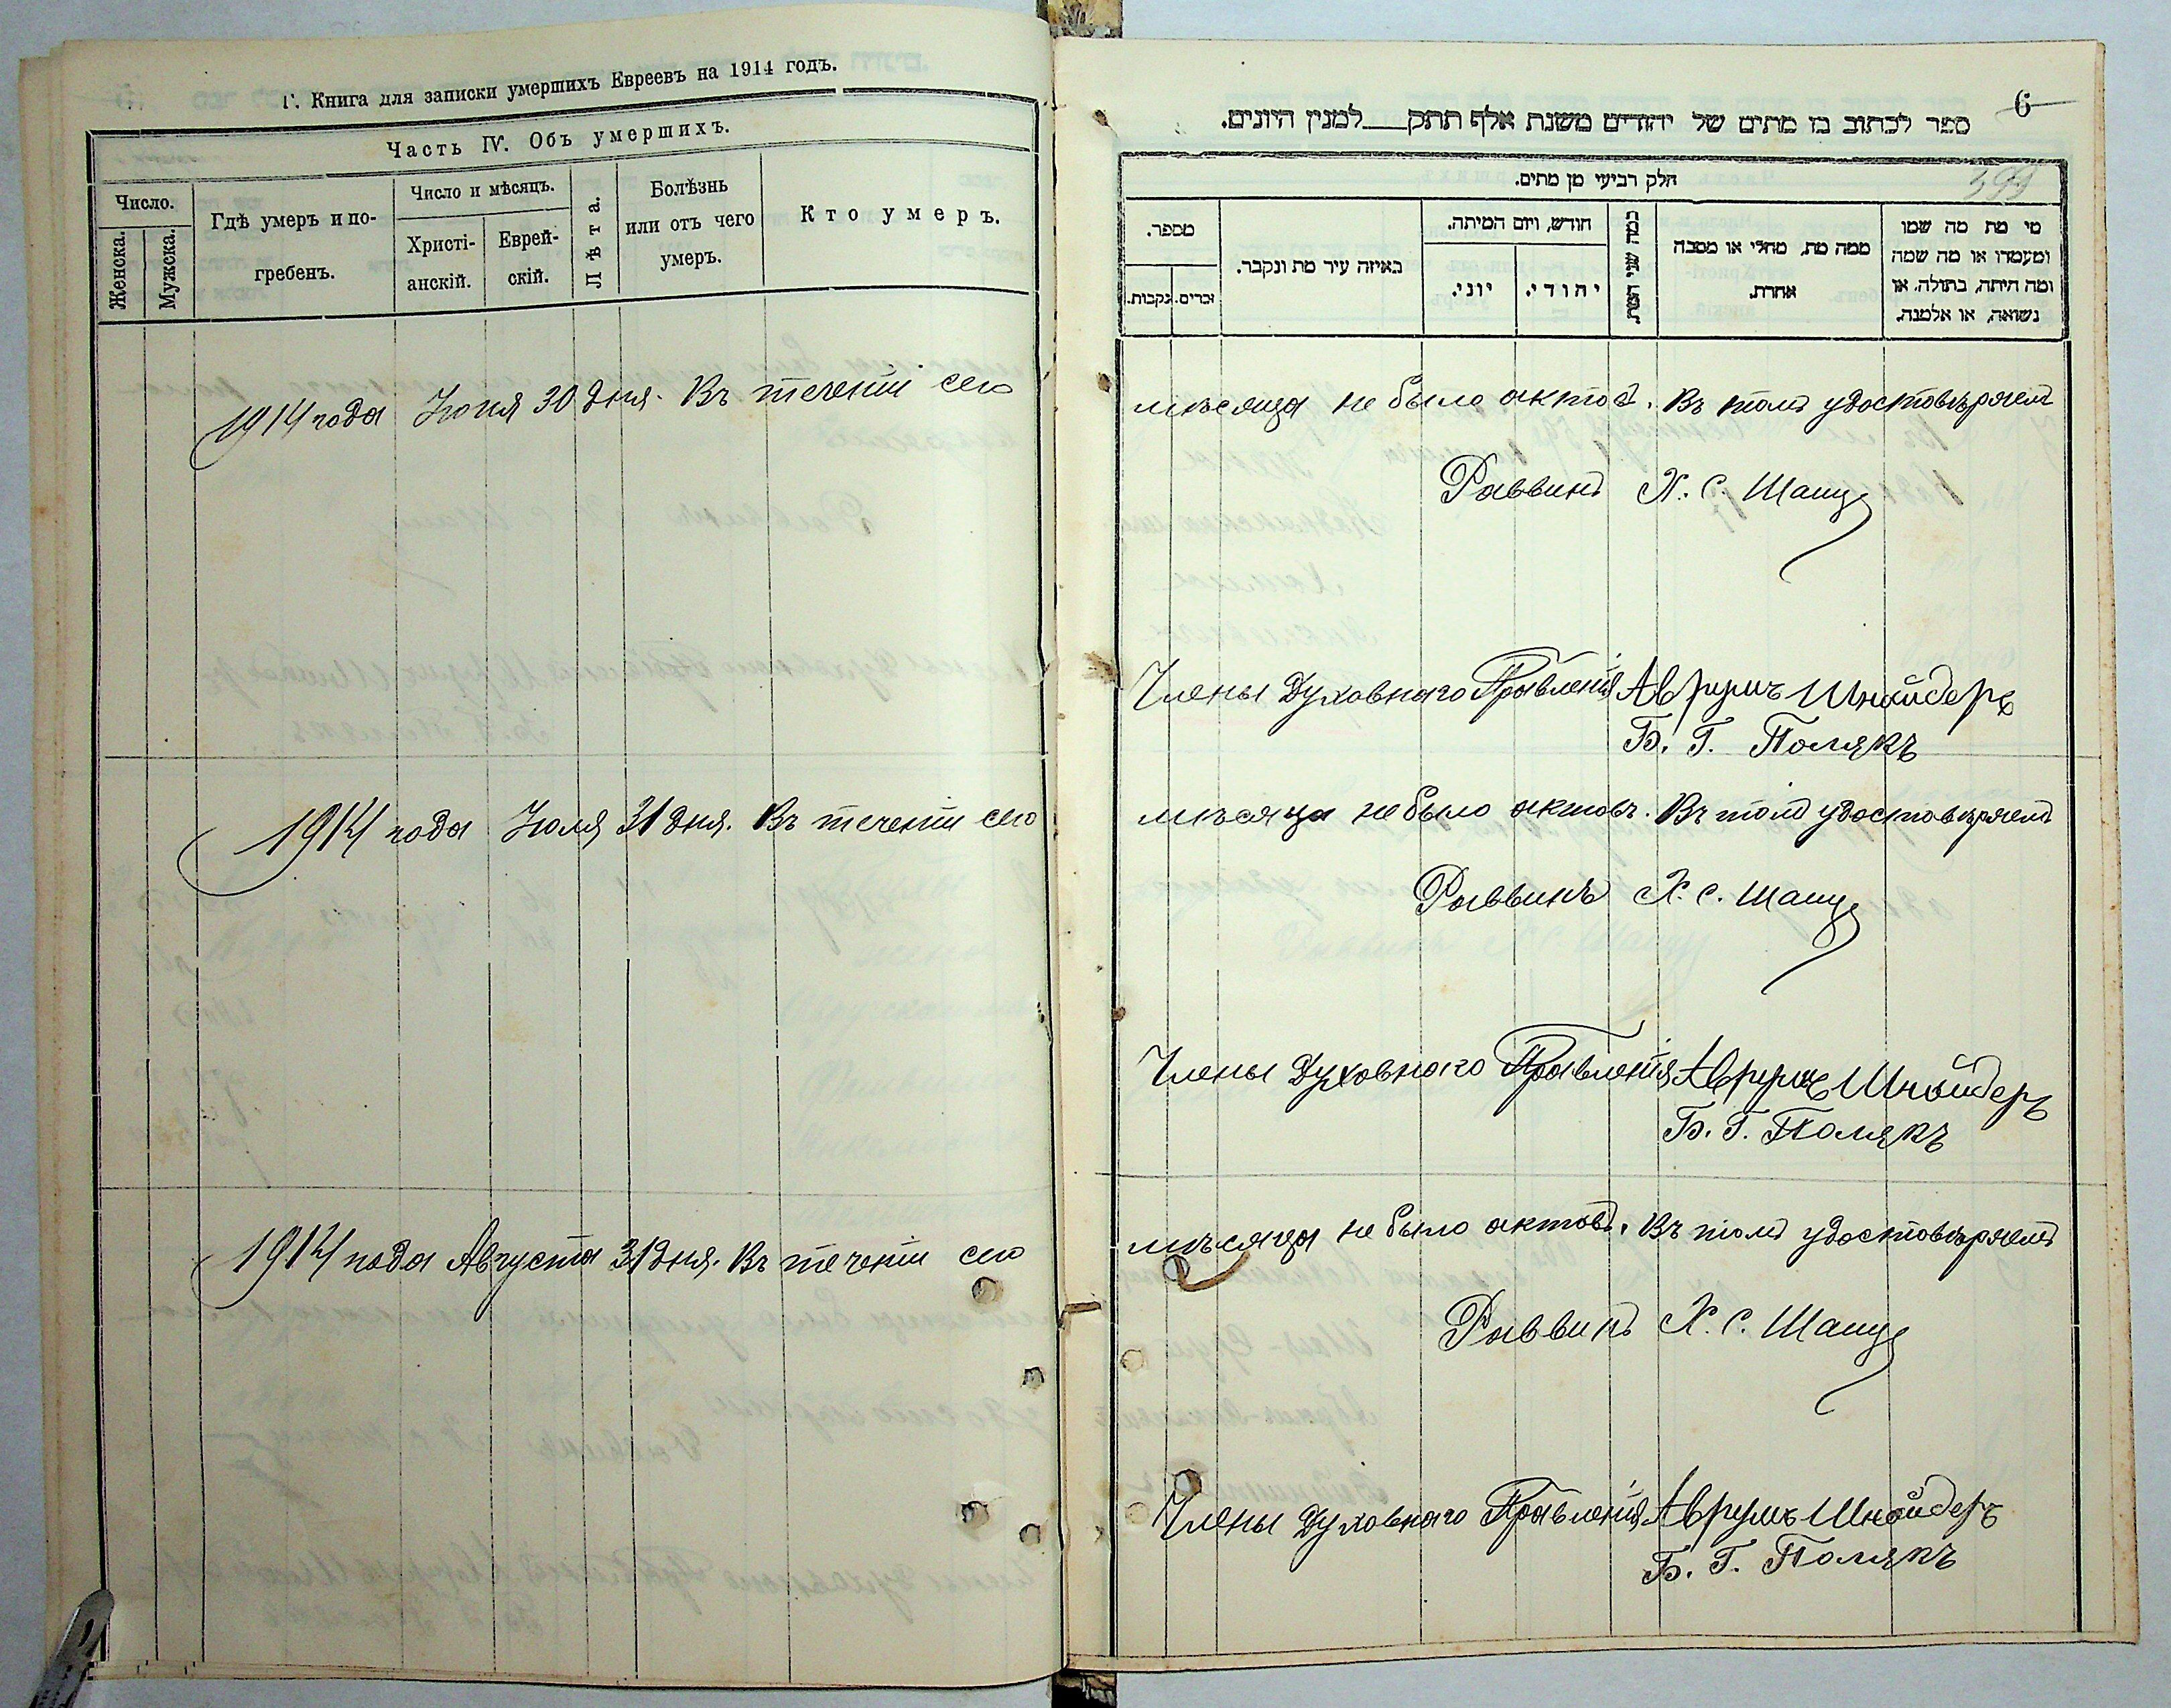 Г. Книга для записки умершихъ Евреевъ на 1914 годъ.
Часть IV. Объ умершихъ.
Число.
Женска.
Мужска.
Гдѣ умеръ и по-
гребенъ.
Число и мѣсяцъ.
Христі-
анскій.
Еврей-
скій.
Лѣта.
Болѣзнь
или отъ чего
умеръ.
Кто умеръ.
1914 года Іюня 30 дня. Въ теченіи сего
1914 года Іюля 31 дня. Въ теченіи сего
1914 года Августа 31 дня. Въ теченіи сего
6
ספר לכתוב בו מתים של יהודים משנת אלף תתק___למנין היונים.
399
חלק רביעי מן מתים.
מספר.
זכרים.
נקבות.
באיזה עיר מת ונקבר.
חודש, ויום המיתה.
יוני.
יהודי.
כמה שני המת.
ממה מת, מחלי או מסבה
אחרת.
מי מת מה שמו
ומעמדו או מה שמה
ומה היתה, בתולה, או
נשואה, או אלמנה.
мѣсяца не было актовъ. Въ томъ удостовѣряемъ
Раввинъ Х. С. Шацъ
Члены Духовнаго Правленія Аврумъ Шнайдеръ
Б. Г. Полякъ
мѣсяца не было актовъ. Въ томъ удостовѣряемъ
Раввинъ Х. С. Шацъ
Члены Духовнаго Правленія Аврумъ Шнайдеръ
Б. Г. Полякъ
мѣсяца не было актовъ. Въ томъ удостовѣряемъ
Раввинъ Х. С. Шацъ
Члены Духовнаго Правленія Аврумъ Шнайдеръ
Б. Г. Полякъ